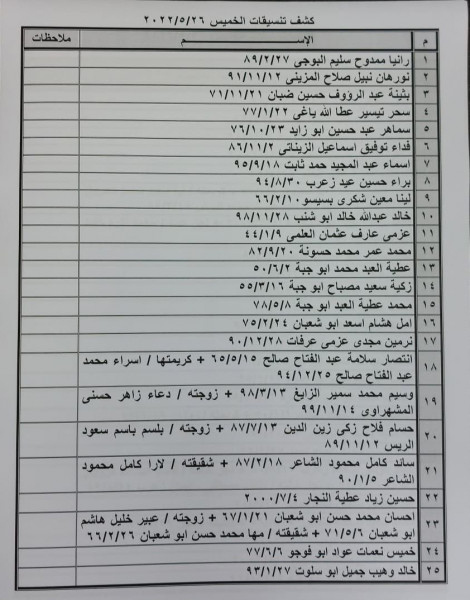 كشف تنسيقات الخميس ٢٠٢٢/٥/٢٦
م الإســـــم ملاحظات
١ رانيا ممدوح سليم البوجي ٨٩/٢/٢٧
٢ نورهان نبيل صلاح المزيني ٩١/١١/١٢
٣ بثينة عبد الرؤوف حسين ضبان ٧١/١١/٢١
٤ سحر تيسير عطا الله ياغي ٧٧/١/٢٢
٥ سماهر عبد حسين ابو زايد ٧٦/١٠/٢٣
٦ فداء توفيق اسماعيل الزيناتي ٨٦/١١/٢
٧ اسماء عبد المجيد حمد ثابت ٩٥/٩/١٨
٨ براء حسين عيد زعرب ٩٤/٨/٣٠
٩ لينا معين شكري بسيسو ٦٦/٢/١٠
١٠ خالد عبدالله خالد ابو شنب ٩٨/١١/٢٨
١١ عزمي عارف عثمان العلمي ٤٤/١/٩
١٢ محمد عمر محمد حسونة ٨٢/٩/٢٠
١٣ عطية العبد محمد ابو جبة ٥٠/٦/٢
١٤ زكية سعيد مصباح ابو جبة ٥٥/٣/١٦
١٥ محمد عطية العبد ابو جبة ٧٨/٥/٨
١٦ امل هشام اسعد ابو شعبان ٧٥/٢/٢٤
١٧ نرمين مجدى عزمي عرفات ٩٠/١٢/٢٨
١٨ انتصار سلامة عبد الفتاح صالح ٦٥/٥/١٥ + كريمتها / اسراء محمد
عبد الفتاح صالح ٩٤/١٢/٢٥
١٩ وسيم محمد سمير الزايغ ٩٨/٣/١٣ + زوجته / دعاء زاهر حسني
المشهراوى ٩٩/١١/١٤
٢٠ حسام فلاح زكى زين الدين ٨٧/٧/١٣ + زوجته / بلسم باسم سعود
الريس ٨٩/١١/١٢
٢١ سائد كامل محمود الشاعر ٨٧/٢/١٨ + شقيقته / لارا كامل محمود
الشاعر ٩٠/١/٥
٢٢ حسين زياد عطية النجار ٢٠٠٠/٧/٤
٢٣ احسان محمد حسن ابو شعبان ٦٧/١/٢١ + زوجته / عبير خليل هاشم
ابو شعبان ٧١/٥/٦ + شقيقته / مها محمد حسن ابو شعبان ٦٦/٢/٢٦
٢٤ خميس نعمات عواد ابو فوجو ٧٧/٦/٦
٢٥ خالد وهيب جميل ابو سلوت ٩٣/١/٢٧